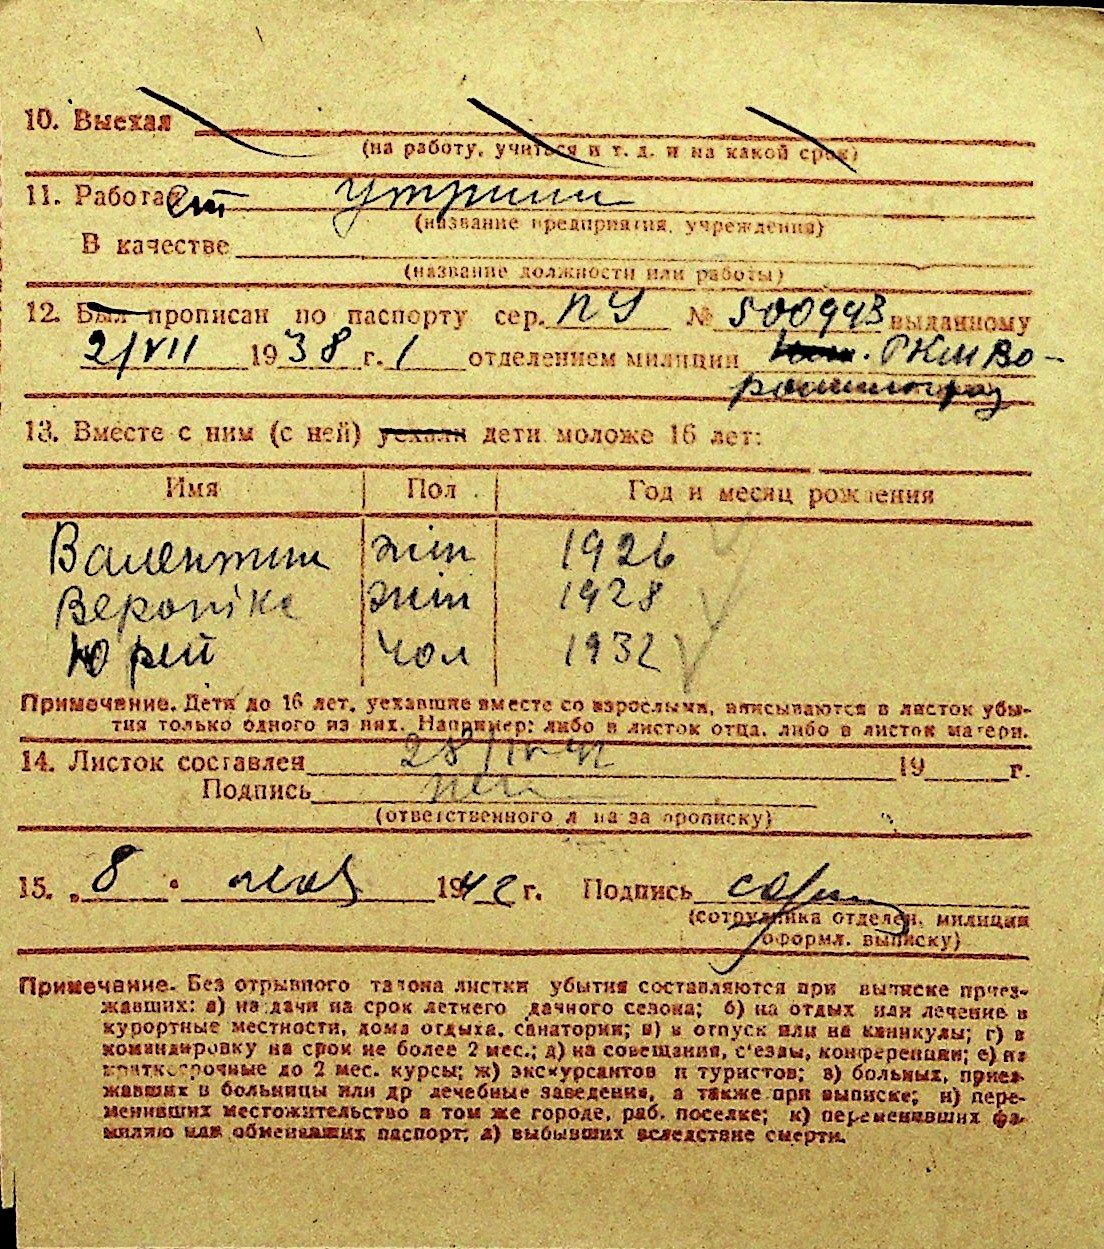 10. Выехал
(на работу, учиться и т. д. и на какой срок)
11. Работал
(название предприятия, учреждения)
В качестве
(название должности или работы)
12. Был прописан по паспорту сер. ПЧ № 500993 выданному
2/VII 1938 г. 1 отделением милиции РКМ Во-
рошиловград
13. Вместе с ним (с ней) уехали дети моложе 16 лет:
Имя Пол Год и месяц рождения
Валентин жін 1926
Вероніка жін 1928
Юрей чол 1932
Примечание. Дети до 16 лет, уехавшие вместе со взрослыми, вписываются в листок убы-
тия только одного из них. Например: либо в листок отца, либо в листок матери.
14. Листок составлен 28/IV 42 19 г.
Подпись
(ответственного л на за прописку)
15. „ 8 " мая 1942 г. Подпись
(сотрудника отделен. милиции
оформл. выписку)
Примечание. Без отрывного талона листки убытия составляются при выписке приез-
жавших: а) на дачи на срок летнего дачного сезона; б) на отдых или лечение в
курортные местности, дома отдыха, санатории; в) в отпуск или на каникулы; г) в
командировку на срок не более 2 мес.; д) на совещания, с'езды, конференции; е) на
краткосрочные до 2 мес. курсы; ж) экскурсантов и туристов; з) больных, приез-
жавших в больницы или др лечебные заведения, а также при выписке; и) пере-
менивших местожительство в том же городе, раб. поселке; к) переменивших фа-
милию или обменявших паспорт; л) выбывших вследствие смерти.